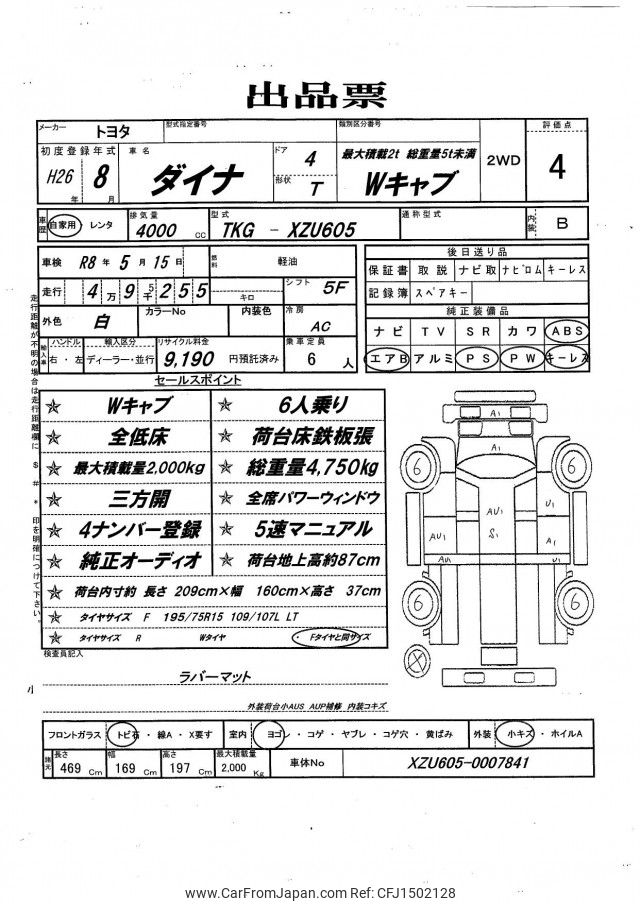 出品票
メーカー トヨタ 型式指定番号 類別区分番号 評価点
初度登録年式 H26年 8月 車名 ダイナ ドア 4 形状 T 最大積載2t 総重量5t未満 Wキャブ 2WD 4
車歴 自家用・レンタ 排気量 4000 cc 型式 TKG - XZU605 通称型式 内装 B
車検 R8年 5月 15日 燃料 軽油
後日送り品
保証書 取説 ナビ取 ナビロム キーレス
記録簿 スペアキー
走行 4万9千255 キロ シフト 5F
純正装備品
外色 白 カラーNo 内装色 冷房 AC
ナビ TV SR カワ ABS
エアB アルミ PS PW キーレス
輸入車 ハンドル 右・左 輸入区分 ディーラー・並行 リサイクル料金 9,190 円預託済み 乗車定員 6人
走行距離が不明の場合は走行距離欄に $ # * 印を明確につけて下さい。
セールスポイント
☆ Wキャブ ☆ 6人乗り
☆ 全低床 ☆ 荷台床鉄板張
☆ 最大積載量2,000kg ☆ 総重量4,750kg
☆ 三方開 ☆ 全席パワーウィンドウ
☆ 4ナンバー登録 ☆ 5速マニュアル
☆ 純正オーディオ ☆ 荷台地上高約87cm
☆ 荷台内寸約 長さ 209cm×幅 160cm×高さ 37cm
☆ タイヤサイズ F 195/75R15 109/107L LT
☆ タイヤサイズ R Wタイヤ ・Fタイヤと同サイズ
A1
A1
6 6
AU1 U1
S1
AU1 A1
AU1 A1
6 6
検査員記入
ラバーマット
外装荷台小AUS AUP補修 内装コキズ
フロントガラス トビ石・線A・X要す 室内 ヨゴレ・コゲ・ヤブレ・コゲ穴・黄ばみ 外装 小キズ・ホイルA
諸元 長さ 469 Cm 幅 169 Cm 高さ 197 Cm 最大積載量 2,000 Kg 車体No XZU605-0007841
www.CarFromJapan.com Ref: CFJ1502128